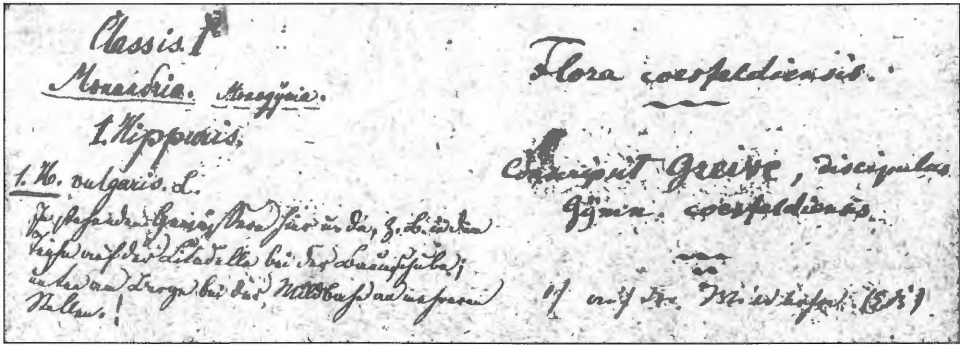 Classis I
Monandria. Monogynia.
1. Hippuris.
1. H. vulgaris. L.
In stehenden Gewässern hier und da, z. B. in dem
Teiche auf der Citadelle bei der Baumschule;
unten am Berge bei der Wildbahn an mehreren
Stellen.!
Flora coesfeldiensis.
Conscripsit Greive, discipulus
Gymn. coesfeldiensis.